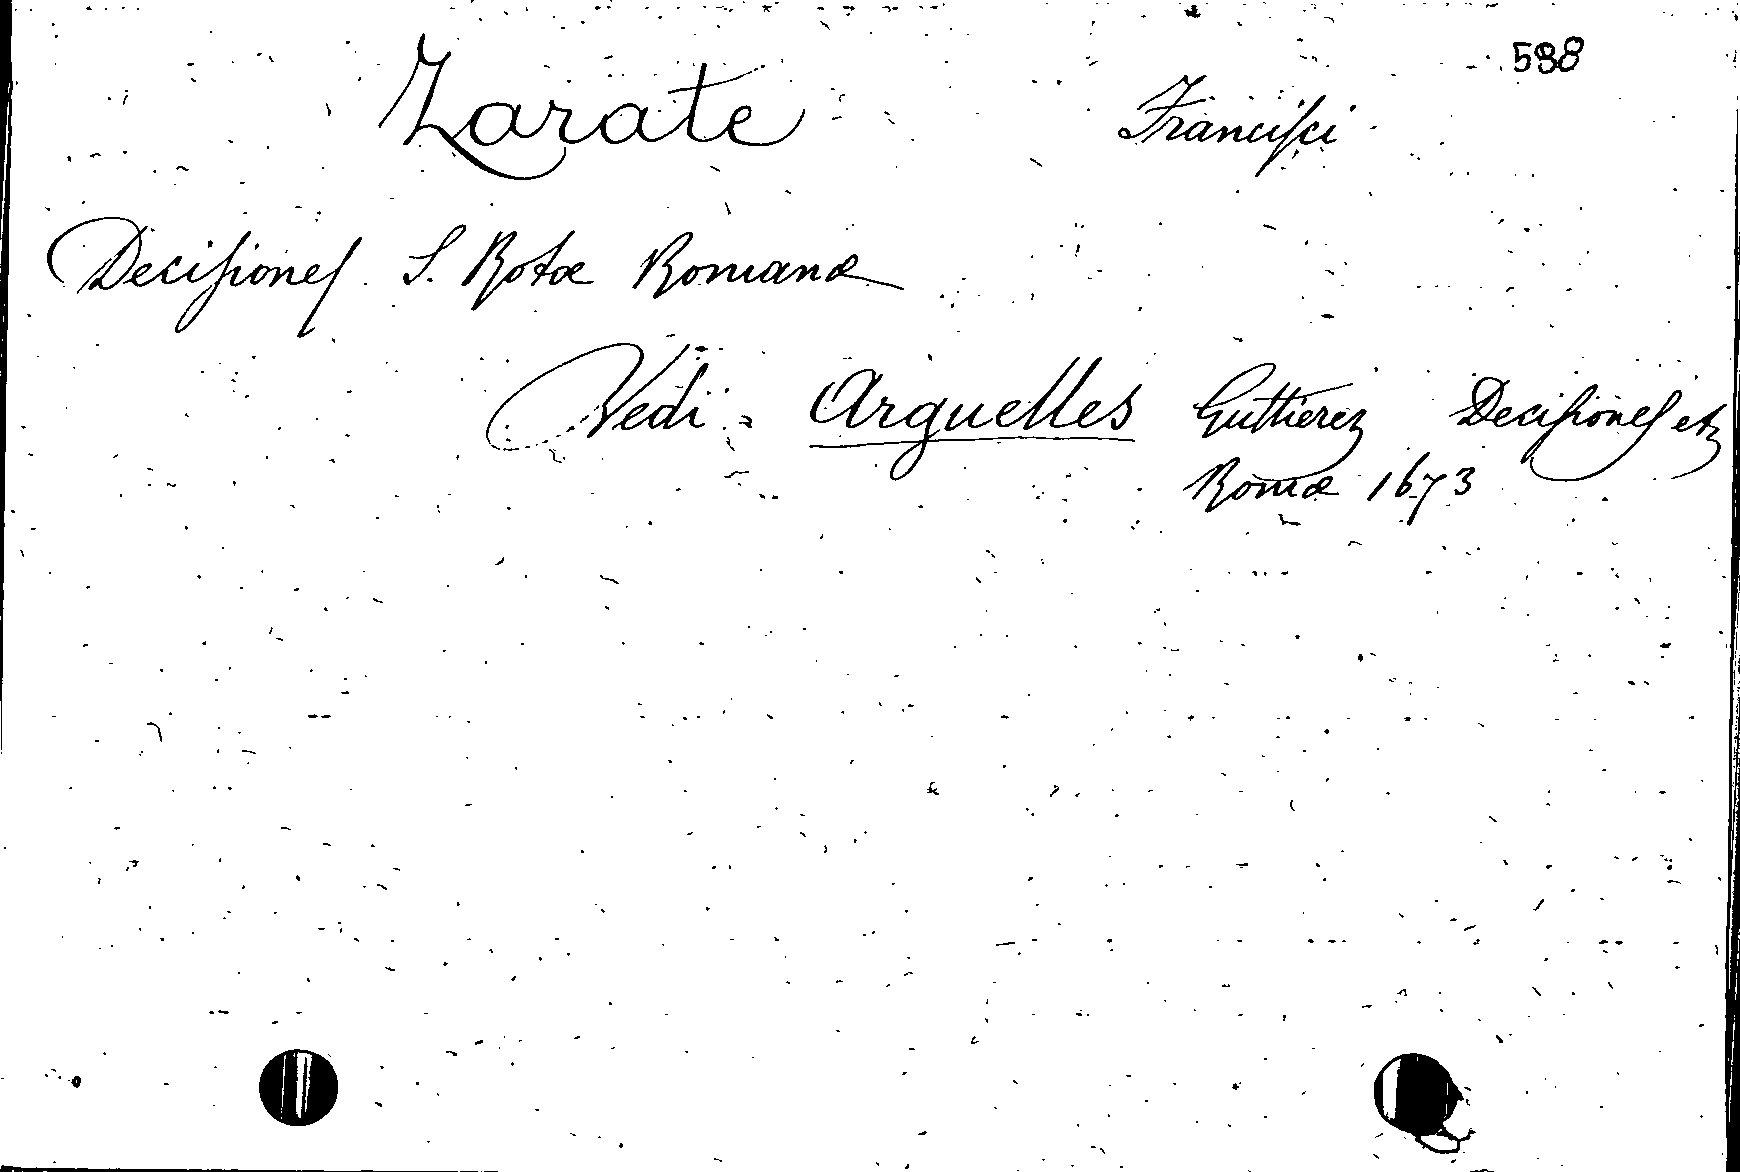 538
Zarate Francisci
Decisiones S. Rotæ Romanæ
Vedi. Arguelles Guttierez Decisiones etz
Romæ 1673